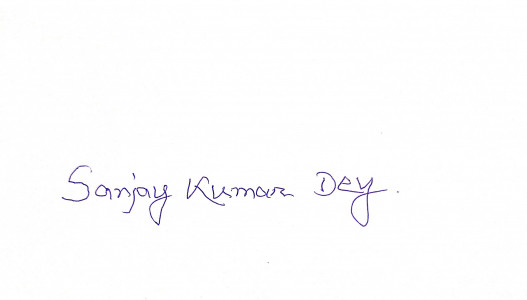 Sanjay Kumar Dey.